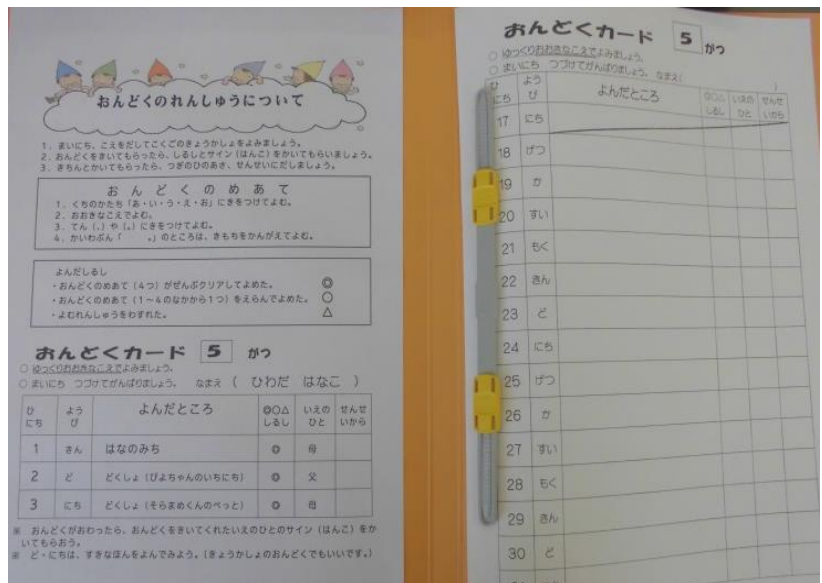 おんどくのれんしゅうについて
1．まいにち、こえをだしてこくごのきょうかしょをよみましょう。
2．おんどくをきいてもらったら、しるしとサイン（はんこ）をかいてもらいましょう。
3．きちんとかいてもらったら、つぎのひのあさ、せんせいにだしましょう。
おんどくのめあて
1．くちのかたち「あ・い・う・え・お」にきをつけてよむ。
2．おおきなこえでよむ。
3．てん（、）や（。）にきをつけてよむ。
4．かいわぶん「　　。」のところは、きもちをかんがえてよむ。
よんだしるし
・おんどくのめあて（4つ）がぜんぶクリアしてよめた。 ◎
・おんどくのめあて（1～4のなかから1つ）をえらんでよめた。 ○
・よむれんしゅうをわすれた。 △
おんどくカード 5 がつ
○ ゆっくりおおきなこえでよみましょう。
○ まいにち つづけてがんばりましょう。 なまえ（ ひわだ はなこ ）
ひにち ようび よんだところ ◎○△しるし いえのひと せんせいから
1 きん はなのみち ◎ 母
2 ど どくしょ（ぴよちゃんのいちにち） ◎ 父
3 にち どくしょ（そらまめくんのべっと） ◎ 母
※ おんどくがおわったら、おんどくをきいてくれたいえのひとのサイン（はんこ）をか
いてもらおう。
※ ど・にちは、すきなほんをよんでみよう。（きょうかしょのおんどくでもいいです。）
おんどくカード 5 がつ
○ ゆっくりおおきなこえでよみましょう。
○ まいにち つづけてがんばりましょう。 なまえ（ ）
ひにち ようび よんだところ ◎○△しるし いえのひと せんせいから
17 にち
18 げつ
19 か
20 すい
21 もく
22 きん
23 ど
24 にち
25 げつ
26 か
27 すい
28 もく
29 きん
30 ど